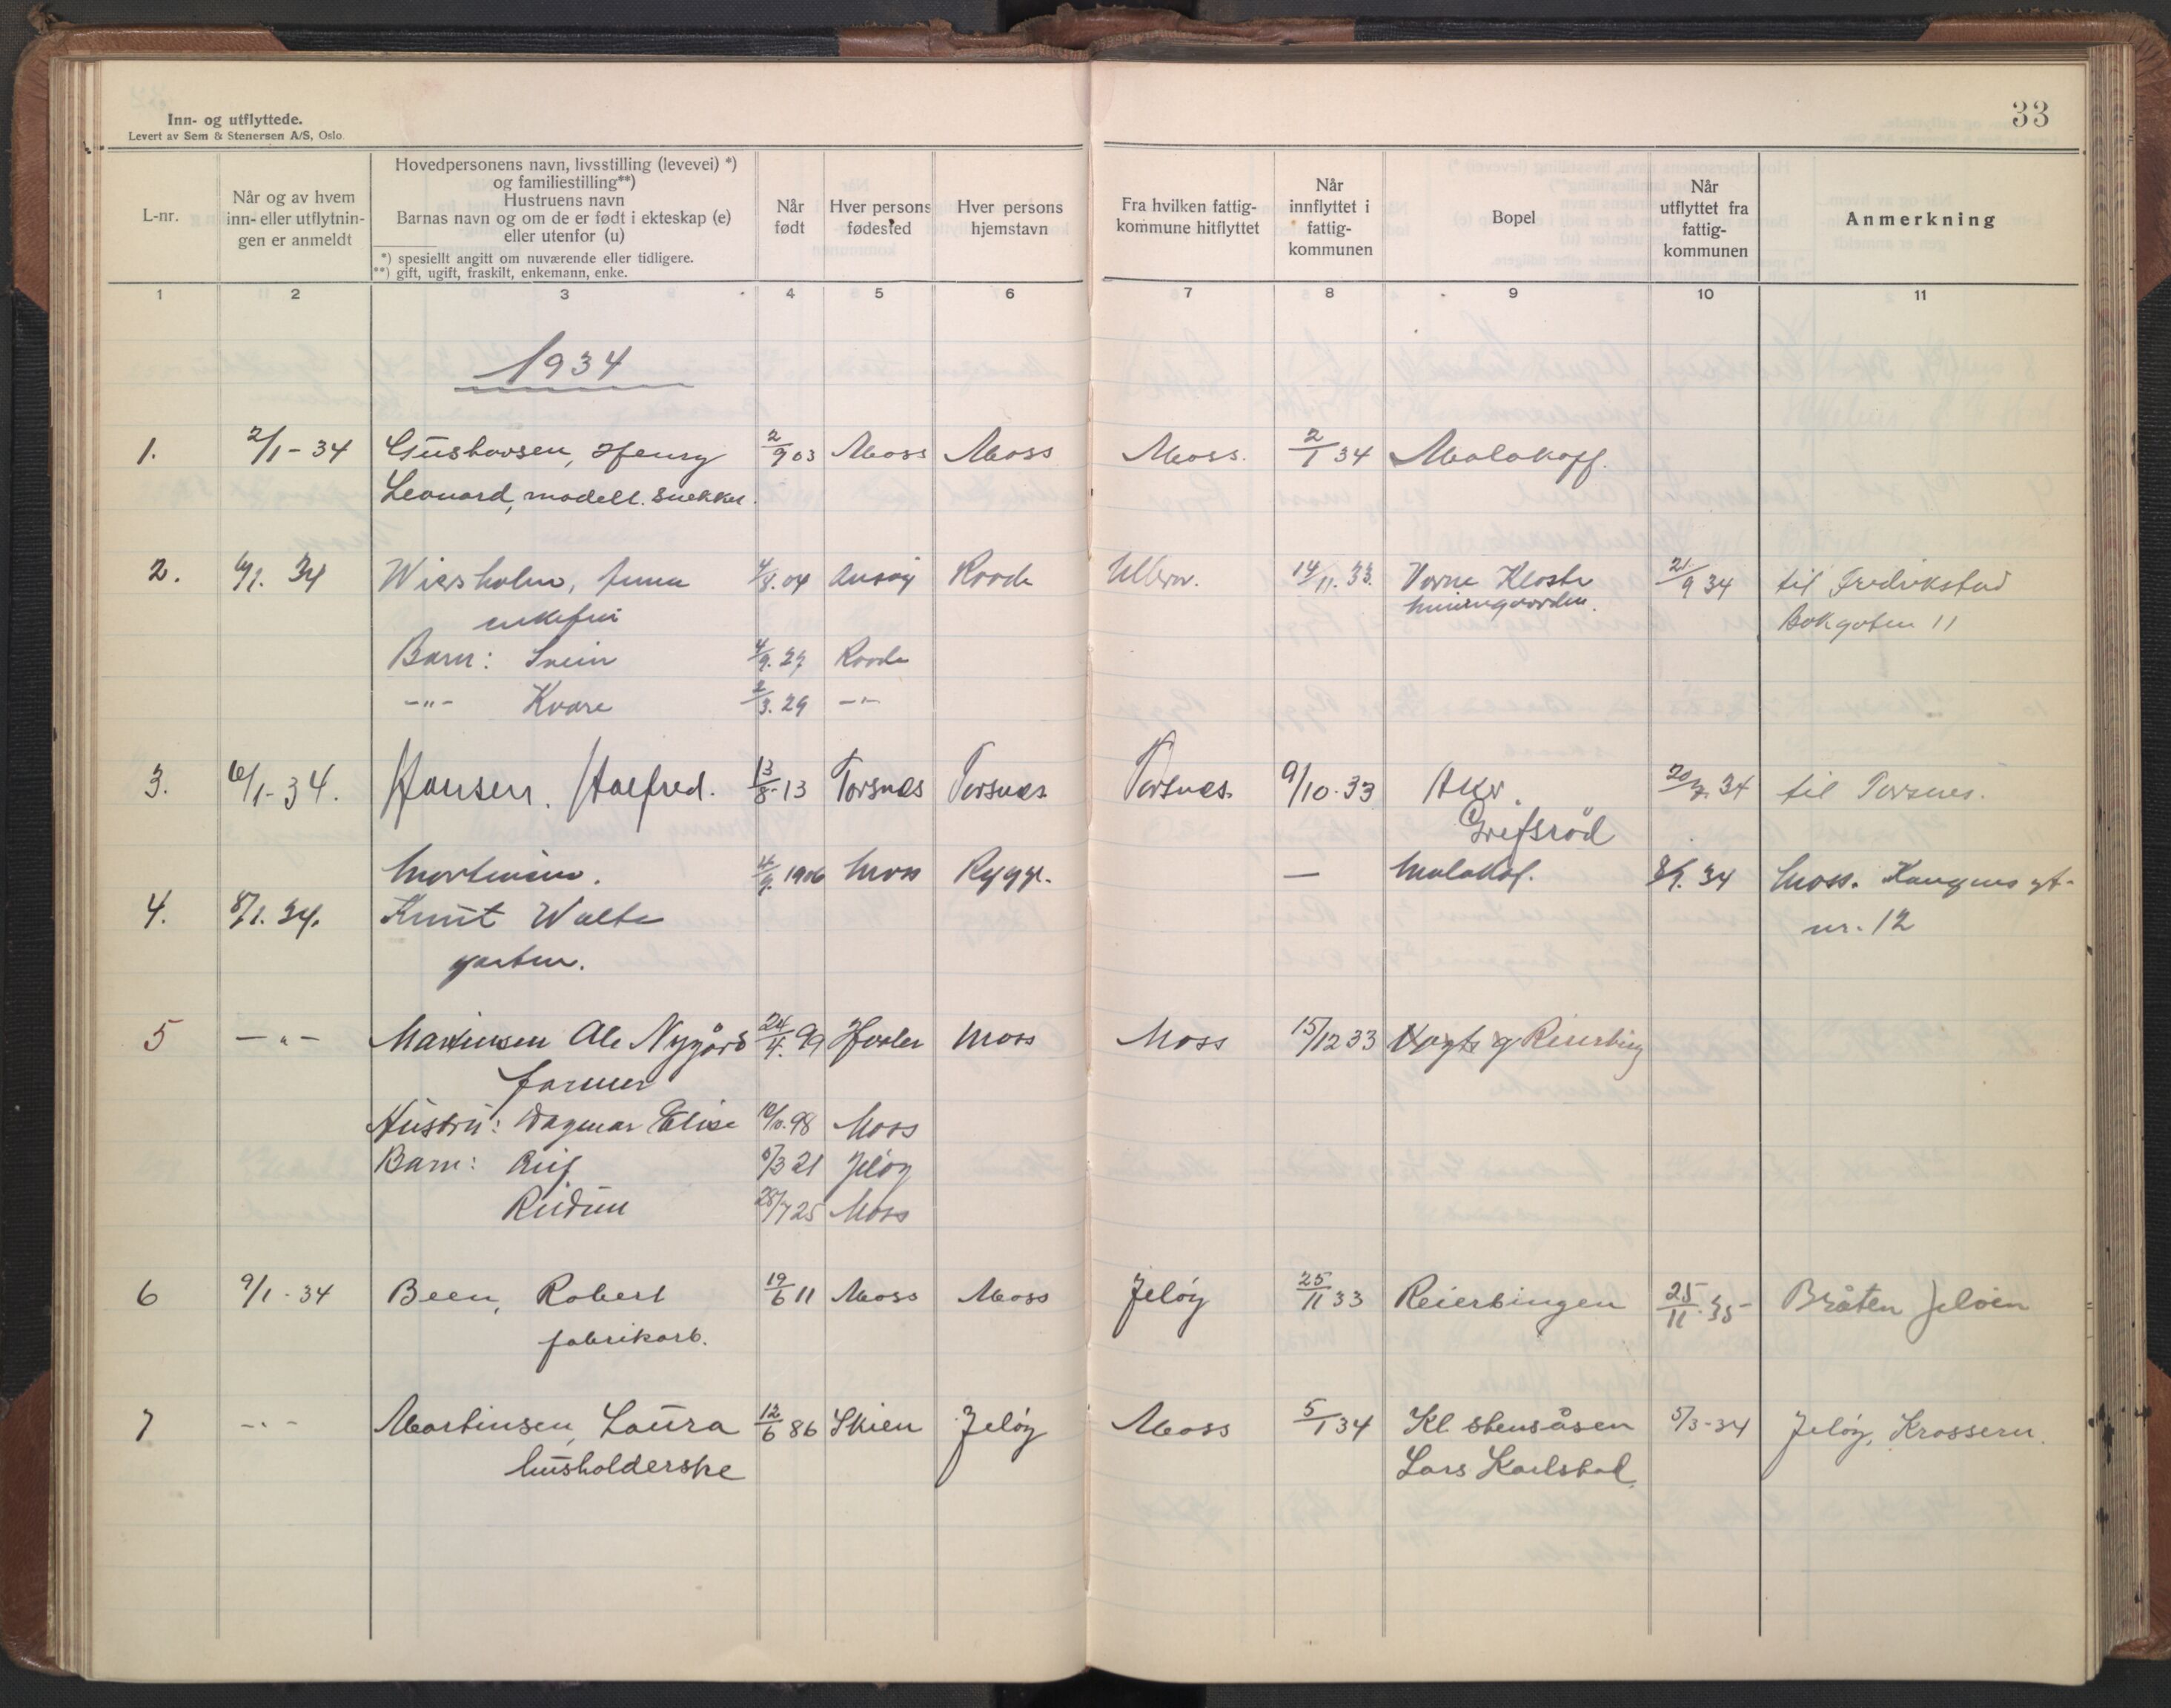 33
Inn- og utflyttede.
Levert av Sem & Stenersen A/S, Oslo.
L-nr.
Når og av hvem
inn- eller utflytnin-
gen er anmeldt
Hovedpersonens navn, livsstilling (levevei) *)
og familiestilling**)
Hustruens navn
Barnas navn og om de er født i ekteskap (e)
eller utenfor (u)
*) spesiellt angitt om nuværende eller tidligere.
**) gift, ugift, fraskilt, enkemann, enke.
Når
født
Hver persons
fødested
Hver persons
hjemstavn
Fra hvilken fattig-
kommune hitflyttet
Når
innflyttet i
fattig-
kommunen
Bopel
Når
utflyttet fra
fattig-
kommunen
Anmerkning
1 2 3 4 5 6 7 8 9 10 11
1934
1. 2/1-34 Gustavsen, Henry 2/9 03 Moss Moss Moss. 2/1 34 Malakoff.
Leonard, modell. snekker.
2. 6/1. 34 04 Raade 14/11. 33. Varne Kloster 21/9 34 til Fredrikstad
enkefru 11
Barn: Svein 4/9. 27 Raade
-"- Kvare 2/3. 29 -"-
3. 6/1-34. Hansen. Halfred. 13/8-13 Torsnes Torsnes Torsnes. 9/10-33 Aker. 34 til Torsnes.
Grefsrød
Mortensen. 4/9. 1906 Moss Rygge. — Malakof. 34 Moss. Kongens gt.
4. 8/1. 34. Knut Walter nr. 12
gartner.
5 -"- Martinsen Ole Nygård 24/4. 99 Hvaler Moss Moss 15/12 33 Reierbing
farmer
Hustru: Dagmar Elise 98 Moss
Barn: 6/3 21 Jeløy
Reidun 28/7 25 Moss
6 9/1-34 Been, Robert 19/6 11 Moss Moss Jeløy 25/11 33 Reierbingen 25/11-35 Bråten Jeløen
fabrikarb.
7 -"- Martinsen, Laura 12/6 86 Skien Jeløy Moss 5/1 34 Kl stensåsen 5/3-34 Jeløy, Krossern.
husholderske Lars Karlstad.